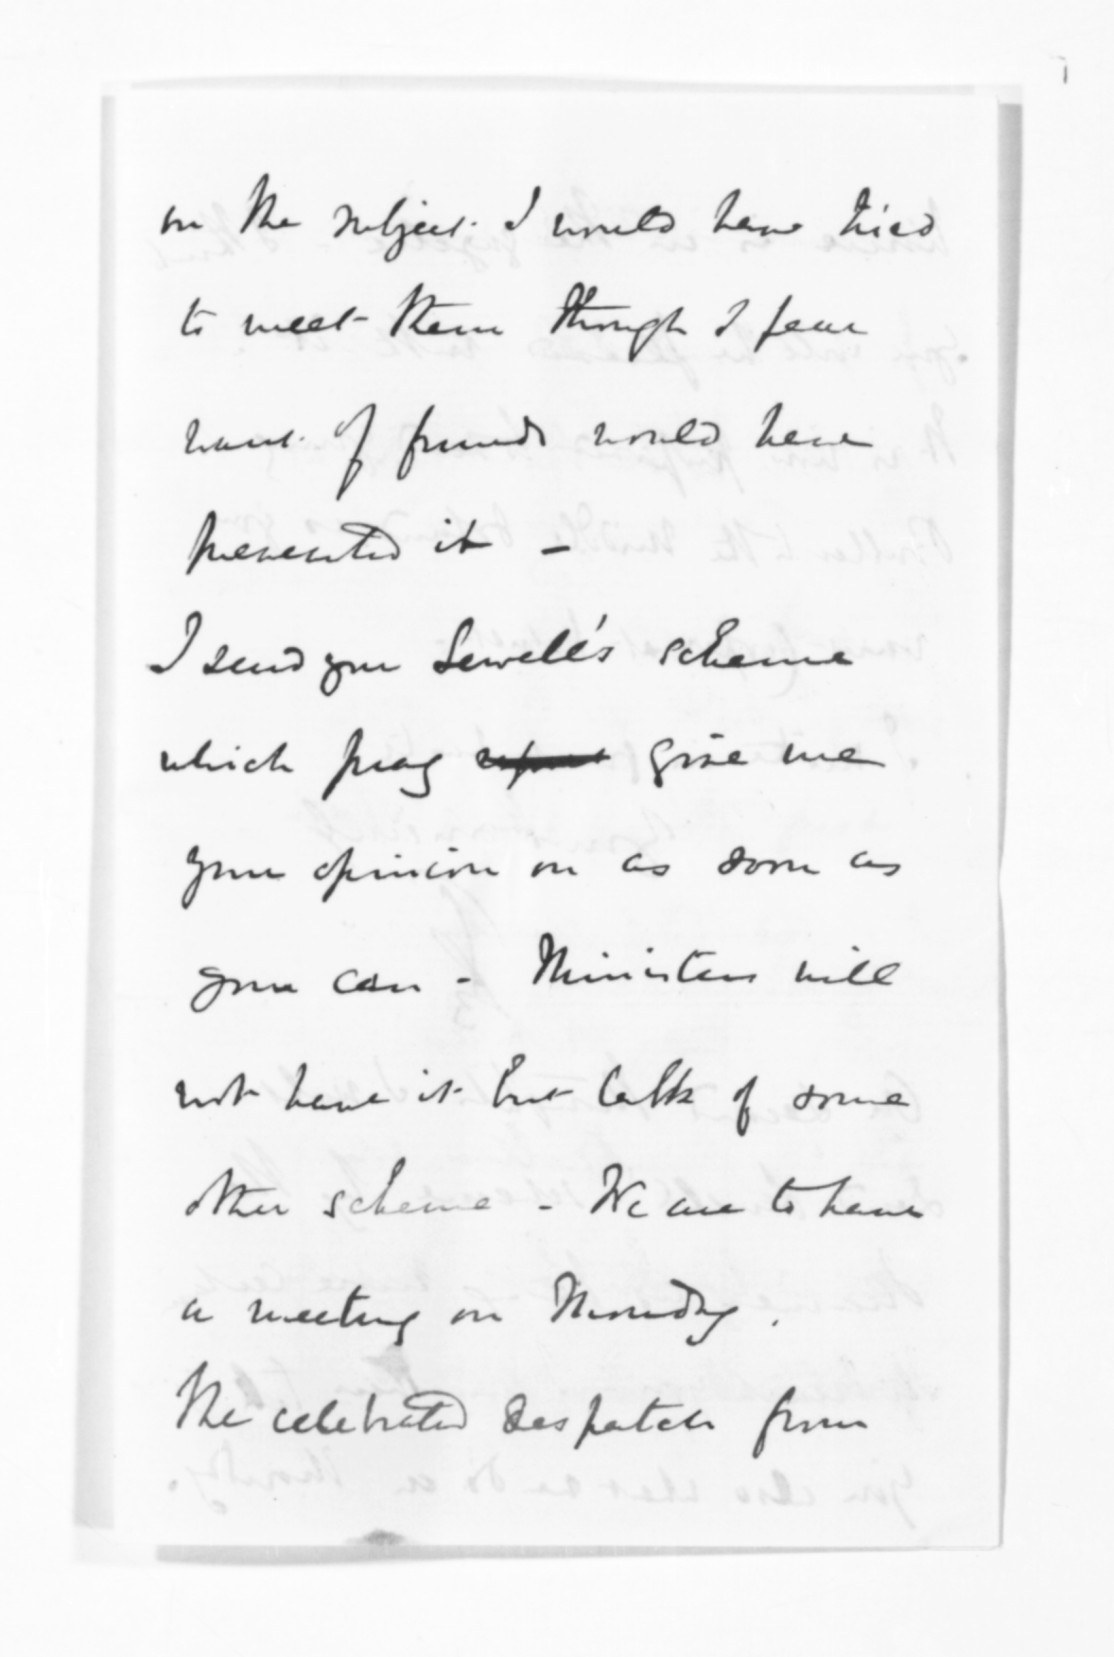 on the subject. I would have tried
to meet them though I fear
want of funds would have
prevented it -
I send you Sewell's scheme
which pray give me
your opinion on as soon as
you can - Ministers will
not have it but talk of some
other scheme - We are to have
a meeting on Monday.
The celebrated despatch from